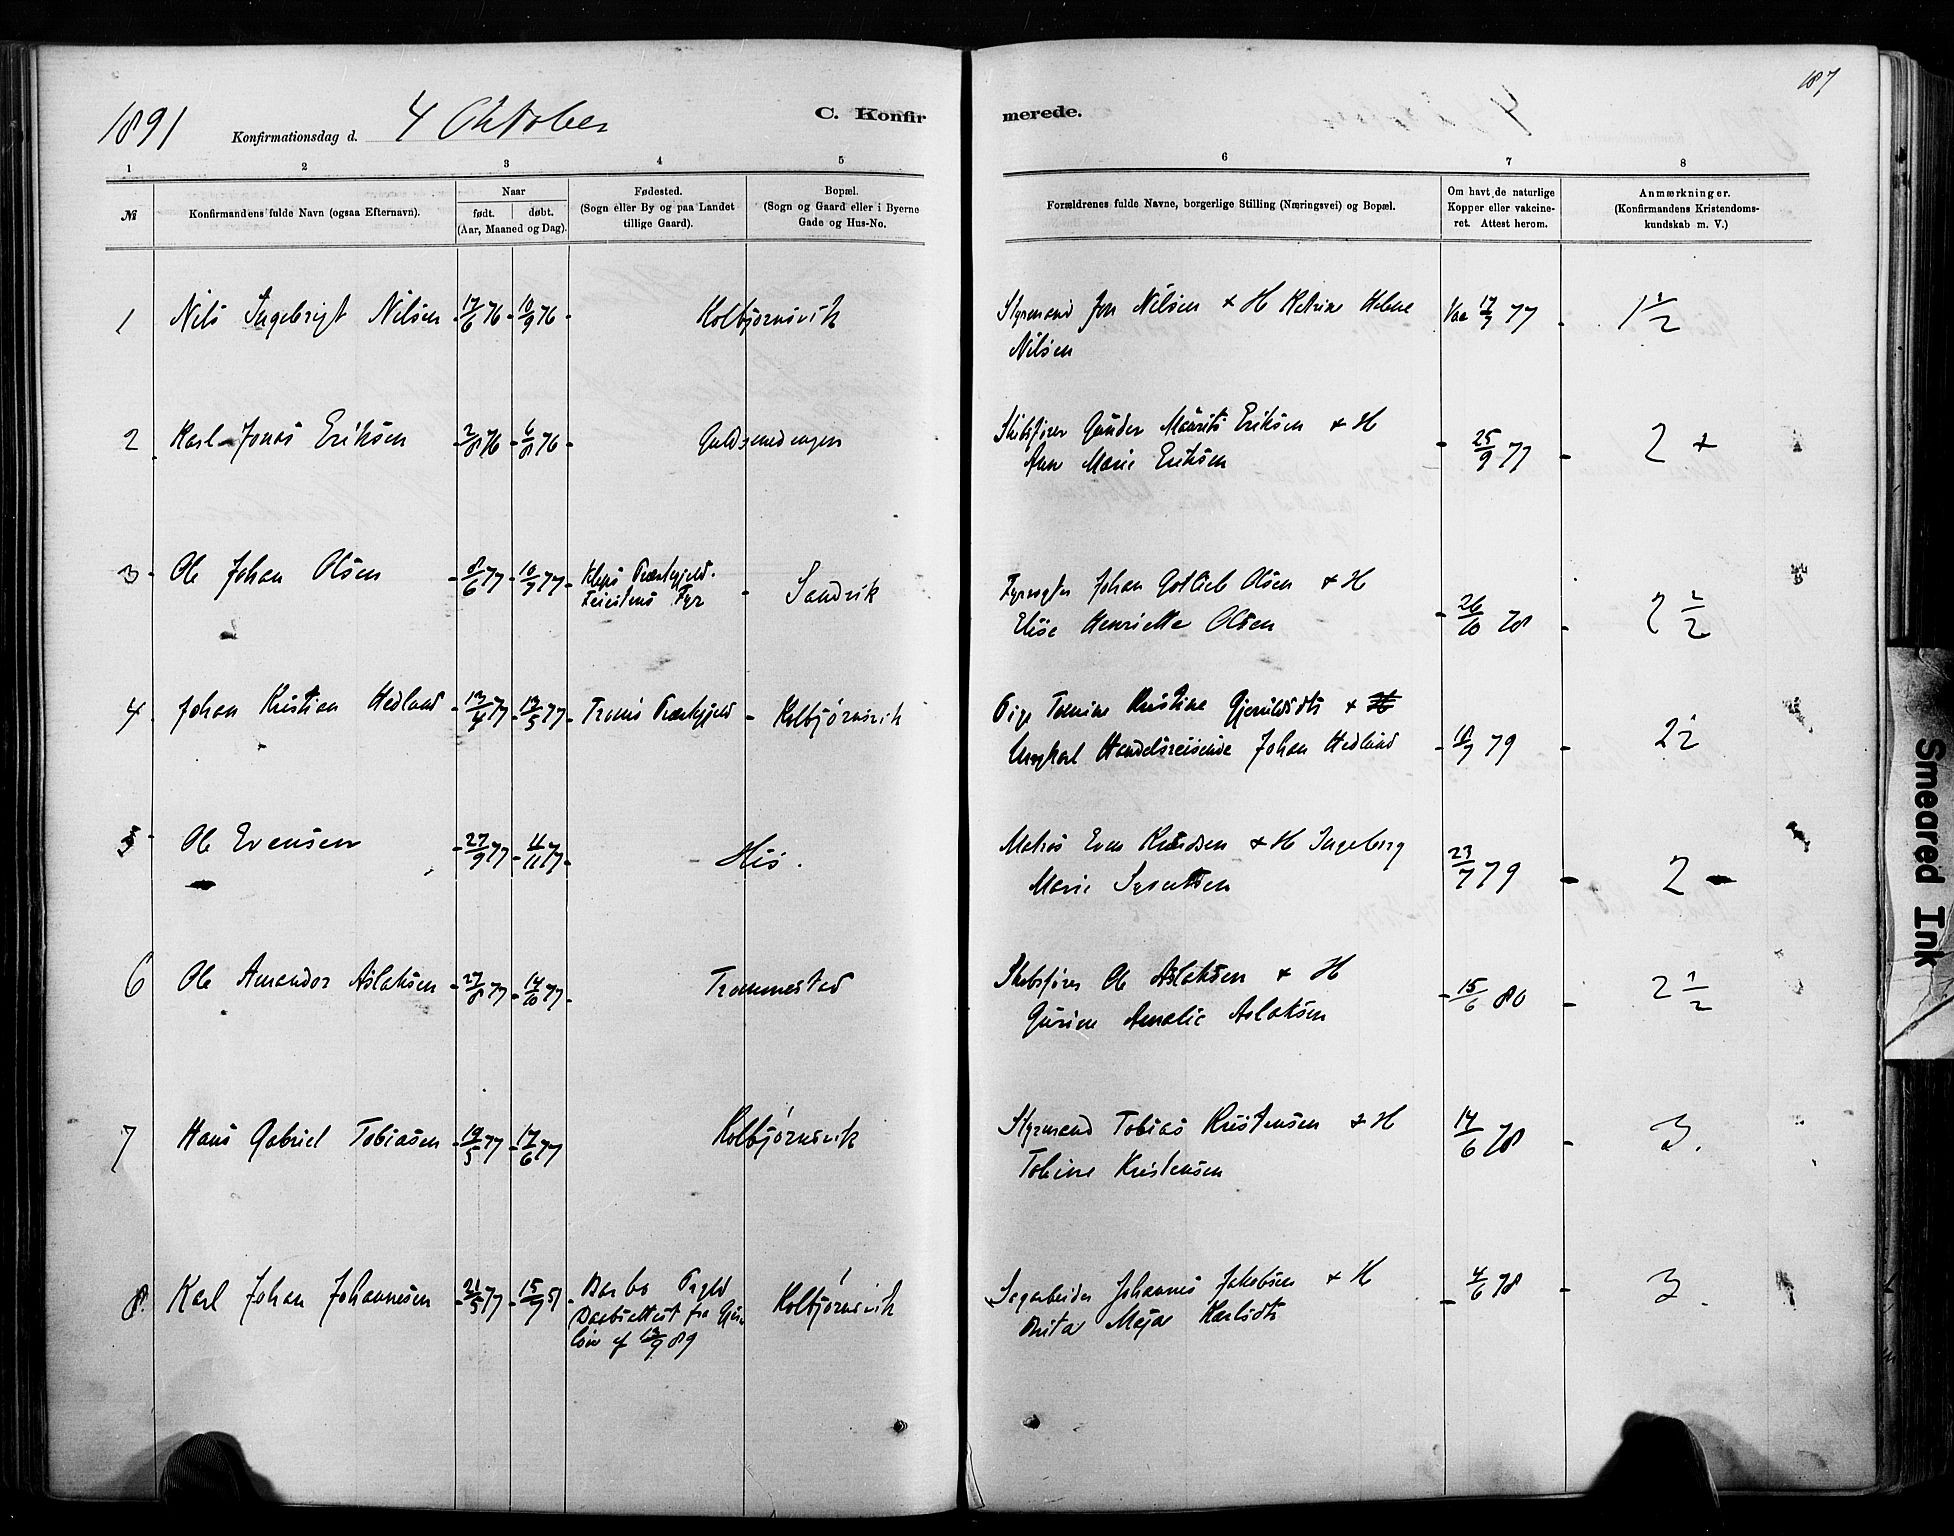 187
1891
Konfirmationsdag d. 4 Oktober
C. Konfirmerede.
1 2 3 4 5 6 7 8
№
Konfirmandens fulde Navn (ogsaa Efternavn).
Naar
født. døbt.
(Aar, Maaned og Dag).
Fødested.
(Sogn eller By og paa Landet
tillige Gaard).
Bopæl.
(Sogn og Gaard eller i Byerne
Gade og Hus-No.
Forældrenes fulde Navne, borgerlige Stilling (Næringsvei) og Bopæl.
Om havt de naturlige
Kopper eller vakcine-
ret. Attest herom.
Anmærkninger.
(Konfirmandens Kristendoms-
kundskab m. V.)
1 Nils Ingebrigt Nilsen 17/6 76 10/9 76 Kolbjørnsvik Styrmand Jon Nilsen & H Katrine Helene 17/9 77 1 1/2
Nilsen
2 Karl Jonas Eriksen 2/8 76 6/8 76 Guldsmedengen Skibsfører Gunder Mauritz Eriksen & H 25/9 77 2 +
Ane Marie Eriksen
3 Ole Johan Olsen 8/6 77 10/7 77 Kleps Præstegjeld. Sandvik Fyrvogter Johan Gotlieb Olsen & H 26/10 78 2 1/2
Feiestens Fyr
Elise Henriette Olsen
4 Johan Kristian Hedlund 13/4 77 13/5 77 Tromø Præstegjeld Kolbjørnsvik Pige Tomine Kristine Gjeruldsdt & H
Ungkarl Handelsreisende Johan Hedlund 18/7 79 2 1/2
5 Ole Evensen 27/9 77 4/11 77 His. Matros Even Knudsen & H Ingeborg 23/7 79 2 -
Marie
6 Ole Amandor Aslaksen 27/8 77 14/10 77 Trommestad Skibsfører Ole Aslaksen & H 15/6 80 2 1/2
Gurine Amalie Aslaksen
7 Hans Gabriel Tobiasen 19/5 77 17/6 77 Kolbjørnsvik Styrmand Tobias Kristensen & H 14/6 78 3.
Tobine Kristensen
8. Karl Johan Johannesen 21/5 77 Barbo Kolbjørnsvik Sagarbeider Johannes Jakobsen & H 4/6 78 3.
Daabsattest fra
af 12/9 89
Maja Karlsdt
Smeared Ink